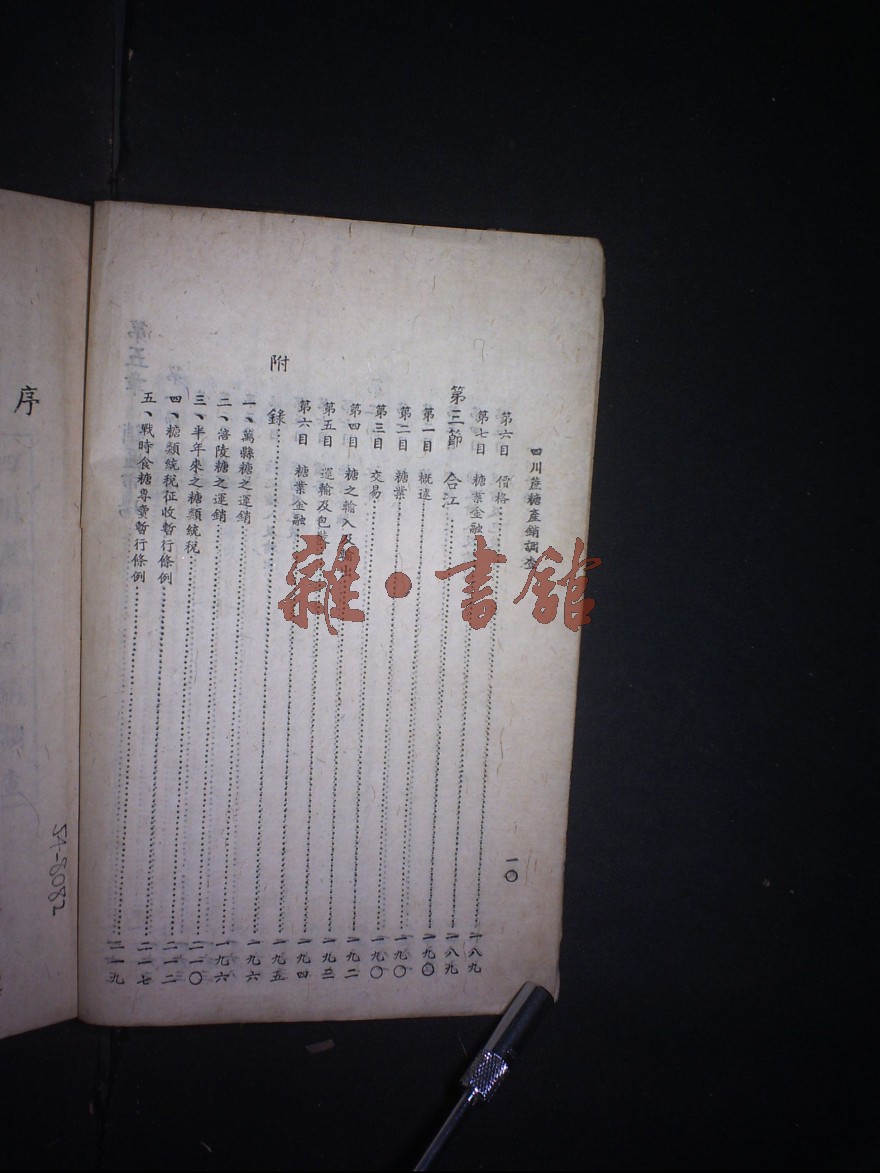 四川蔗糖產銷調查
一〇
第六目 價格 一八九
第七目 糖業金融 一八九
第三節 合江 一九〇
第一目 概述 一九〇
第二目 糖業 一九〇
第三目 交易 一九二
第四目 糖之輸入及 一九三
第五目 運輸及包裝 一九四
第六目 糖業金融 一九五
附錄 一九六
一、萬縣糖之運銷 一九六
二、涪陵糖之運銷 二一〇
三、半年來之糖類統稅 二一二
四、糖類統稅征收暫行條例 二一七
五、戰時食糖專賣暫行條例 二一九
序
54-8082
雜·書館